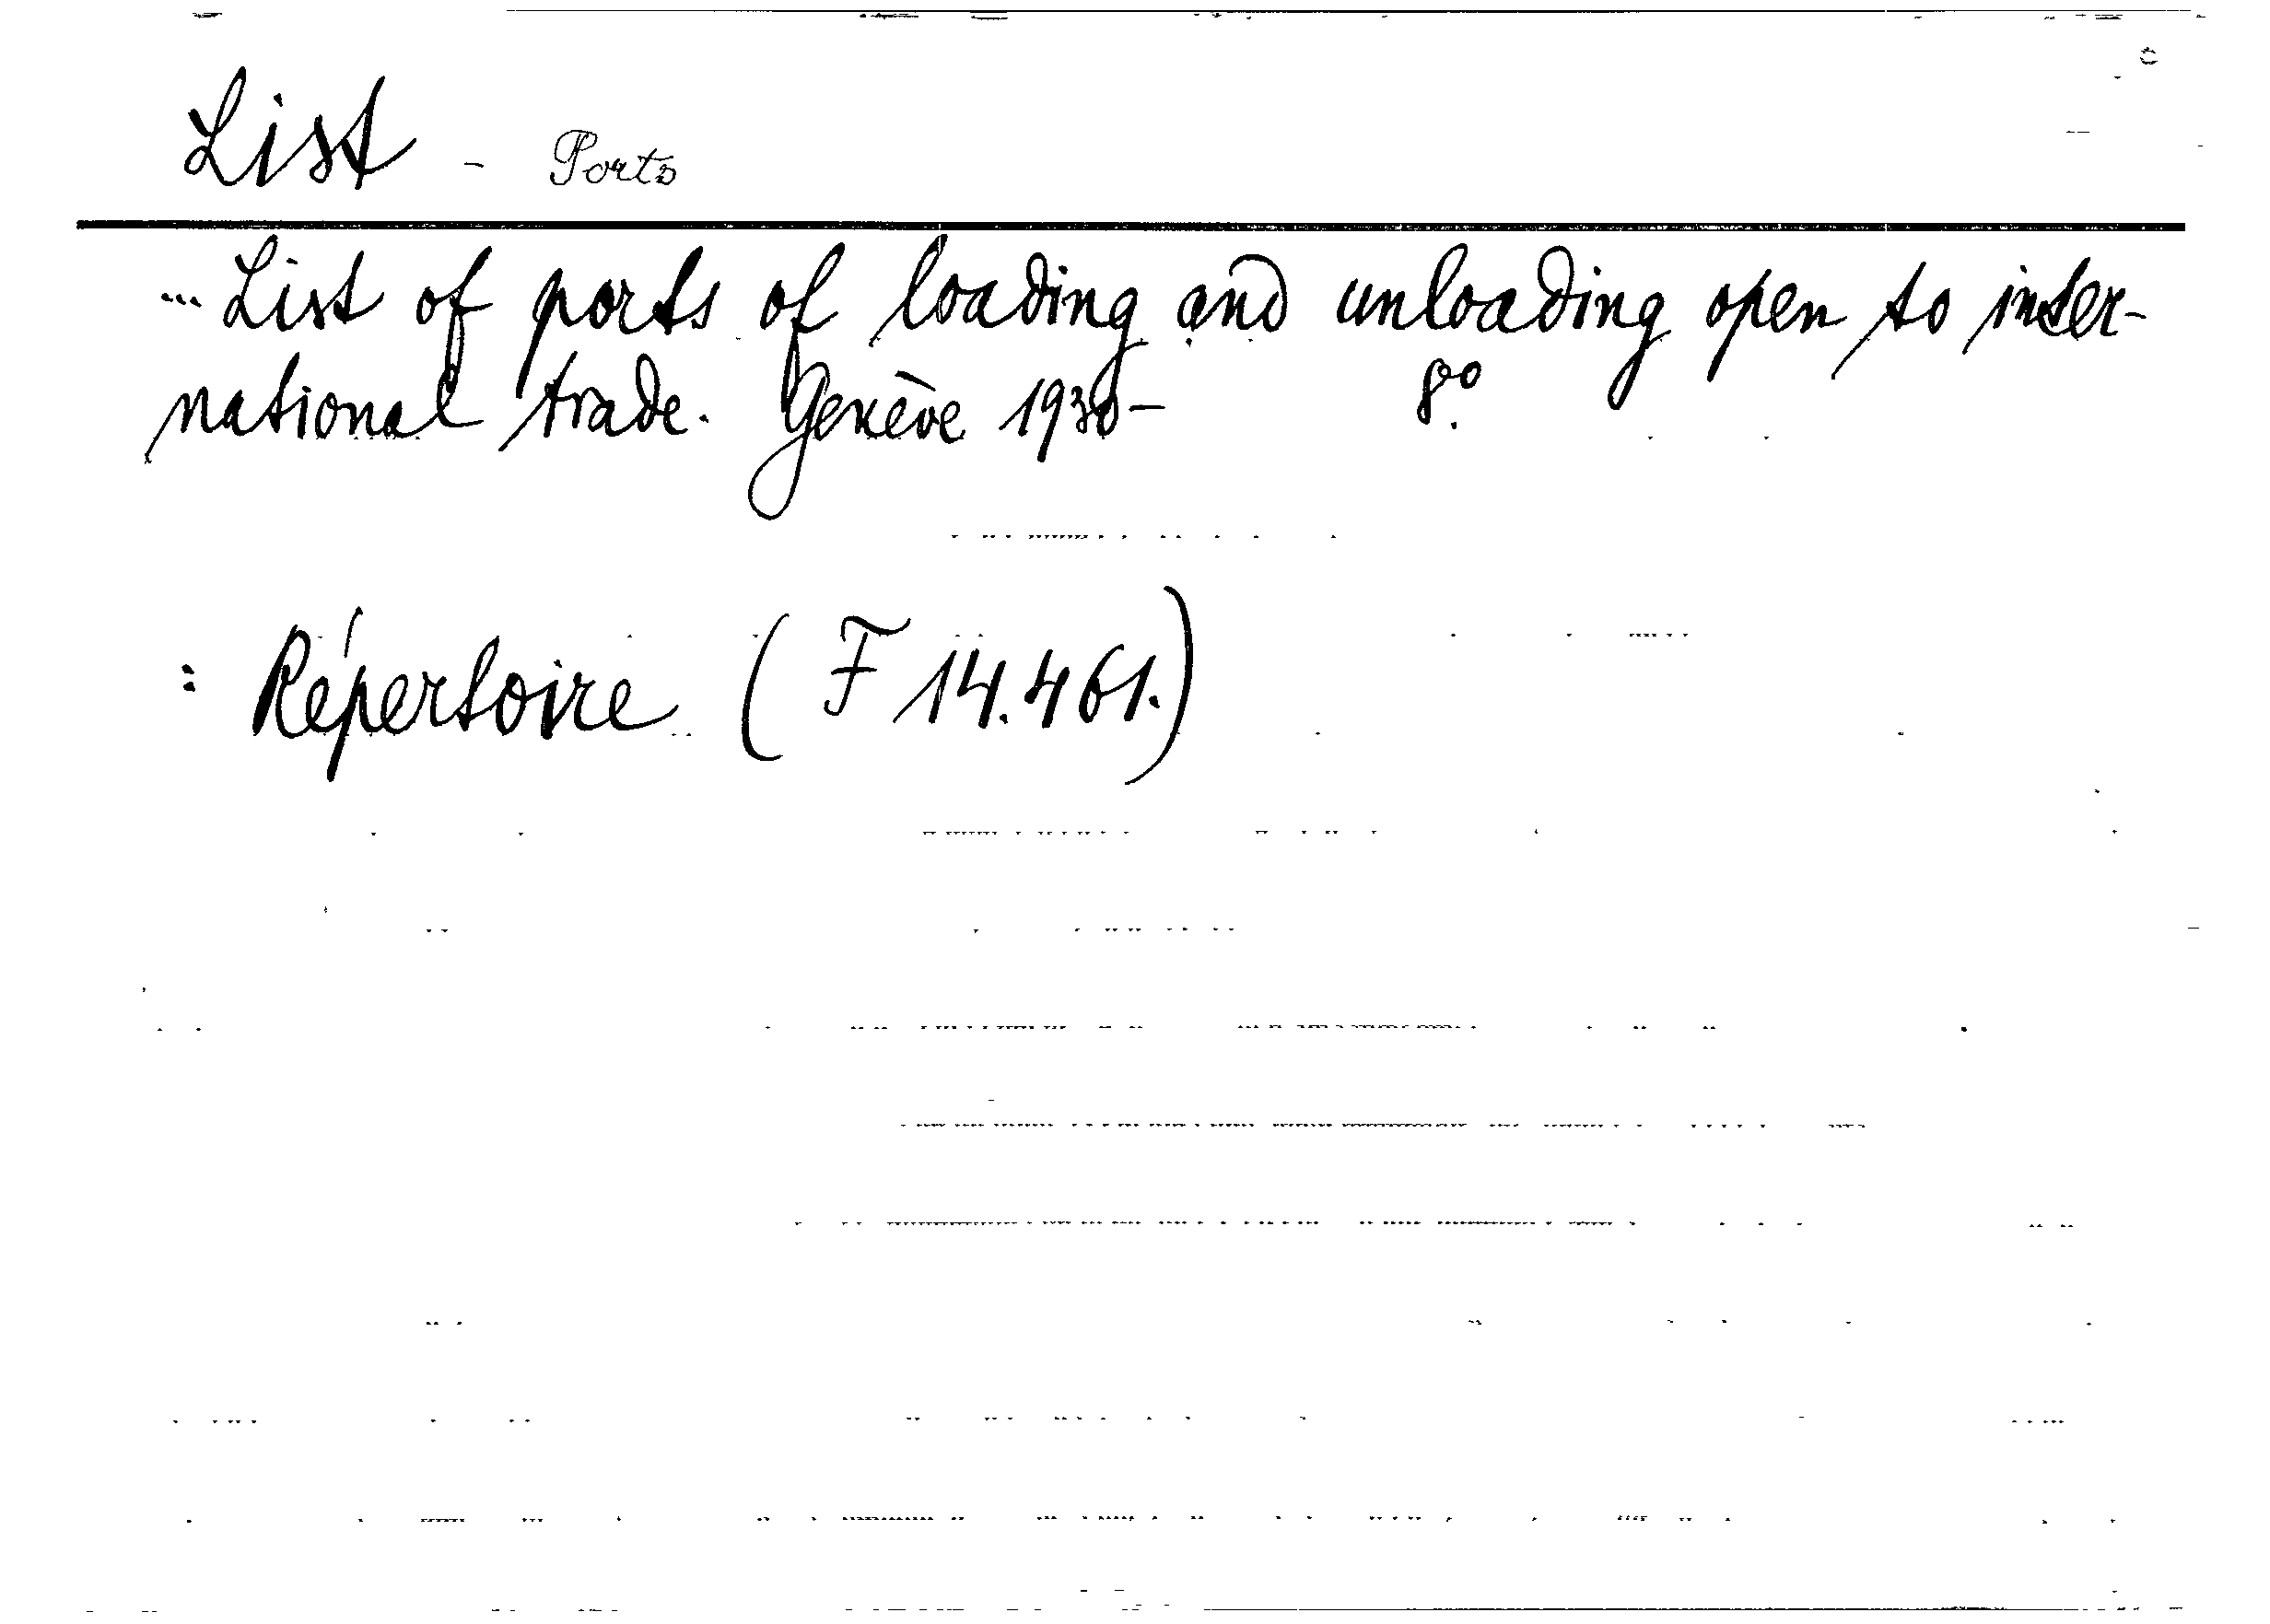 List - Ports
... List of ports of loading and unloading open to inter-
national trade. Genève 1930- 8º.
= Répertoire (F 14.461.)